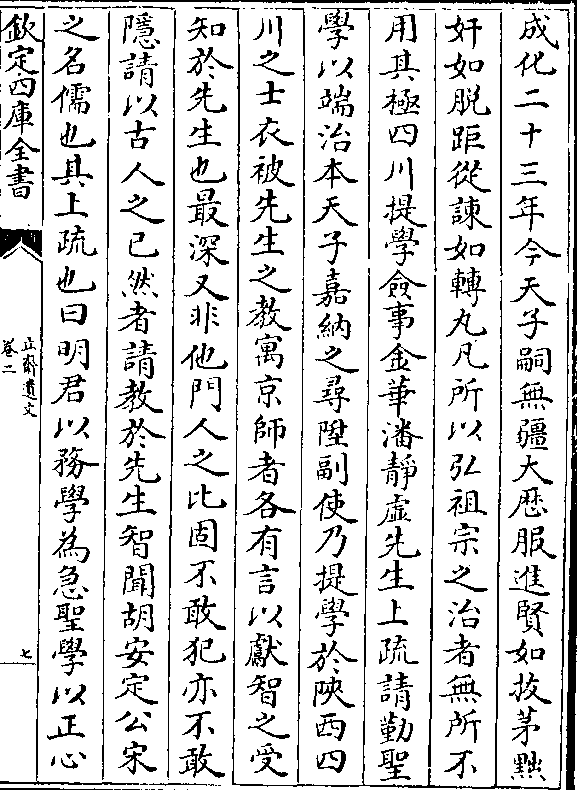 成化二十三年今天子嗣無疆大厯服進賢如拔茅黜
奸如脱距從諫如轉丸凡所以弘祖宗之治者無所不
用其極四川提學僉事金華潘靜虛先生上疏請勤聖
學以端治本天子嘉納之尋陞副使乃提學於陜西四
川之士衣被先生之教寓京師者各有言以獻智之受
知於先生也最深又非他門人之比固不敢犯亦不敢
隱請以古人之已然者請教於先生智聞胡安定公宋
之名儒也其上疏也曰明君以務學為急聖學以正心
欽定四庫全書
立齋遺文
卷二
七